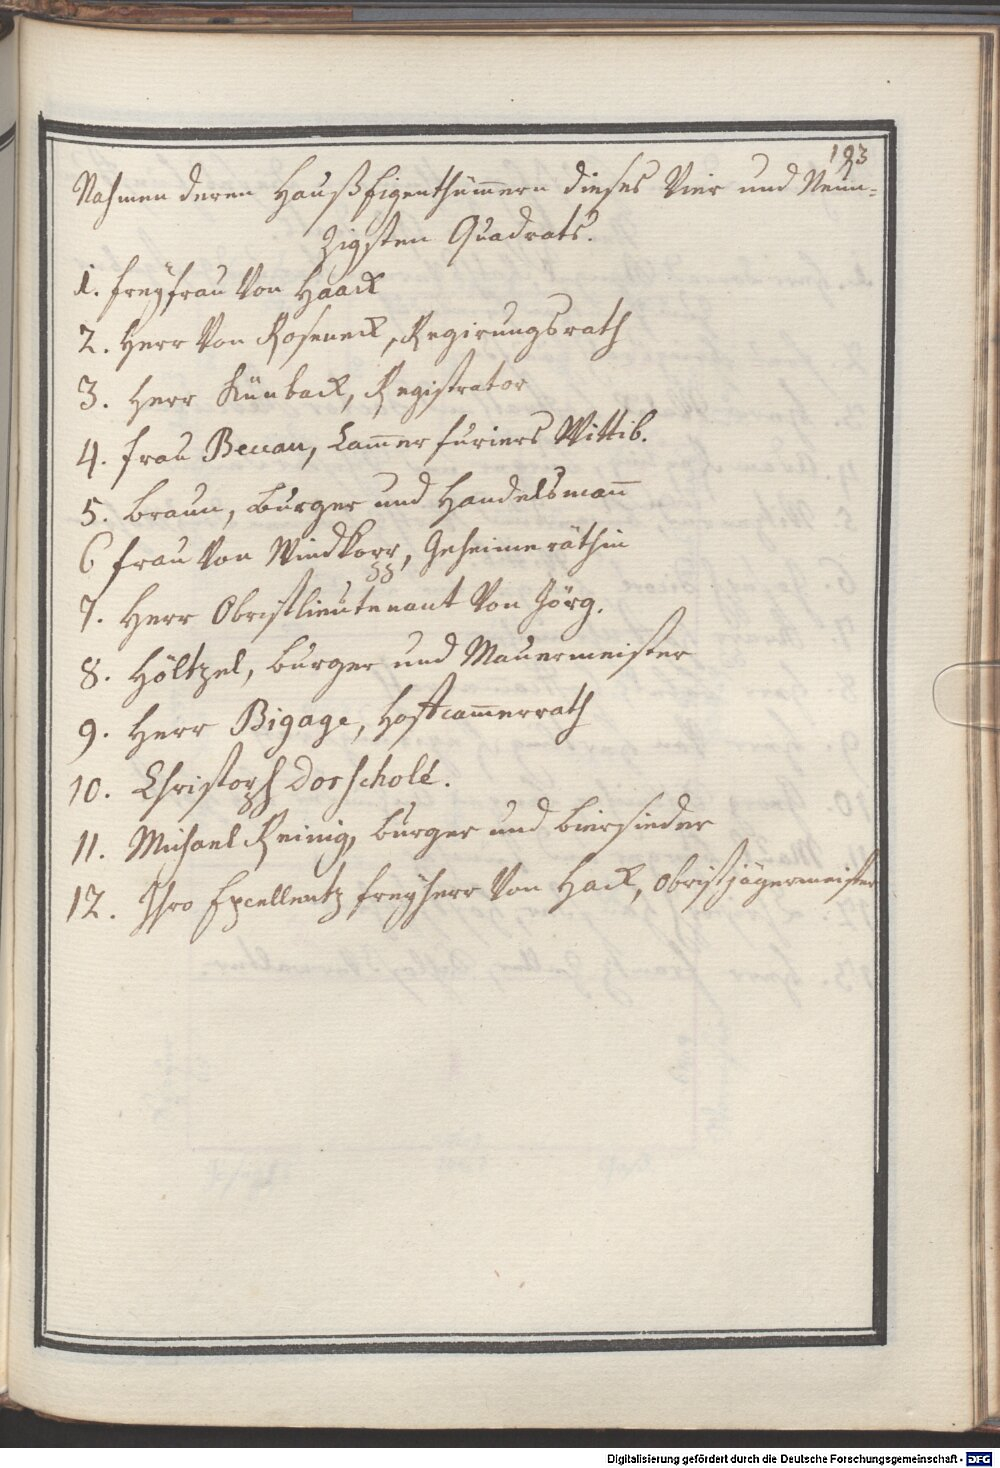 193
Nahmen deren Haußeigenthümmern dieses Vier und Neun-
Zigsten Quadrats.
1. freyfrau Von Haack
2. Herr Von Roseneck, Regirungsrath
3. Herr Künback, Registrator
4. frau Beccau, Cam̄er furiers Wittib.
5. Braun, Burger und Handelsman̄
6 frau Von Windkopp, Geheimeräthin
7. Herr Obristlieutenant Von Jörg.
8. Höltzel, burger und Mauermeister
9. Herr Bigage, Hoffcam̄errath
10. Christoph Dorscholé.
11. Michael Reinig, burger und biersieder
12. Ihro Excellentz freyherr Von Hack, Obristjägermeister
Digitalisierung gefördert durch die Deutsche Forschungsgemeinschaft - DFG